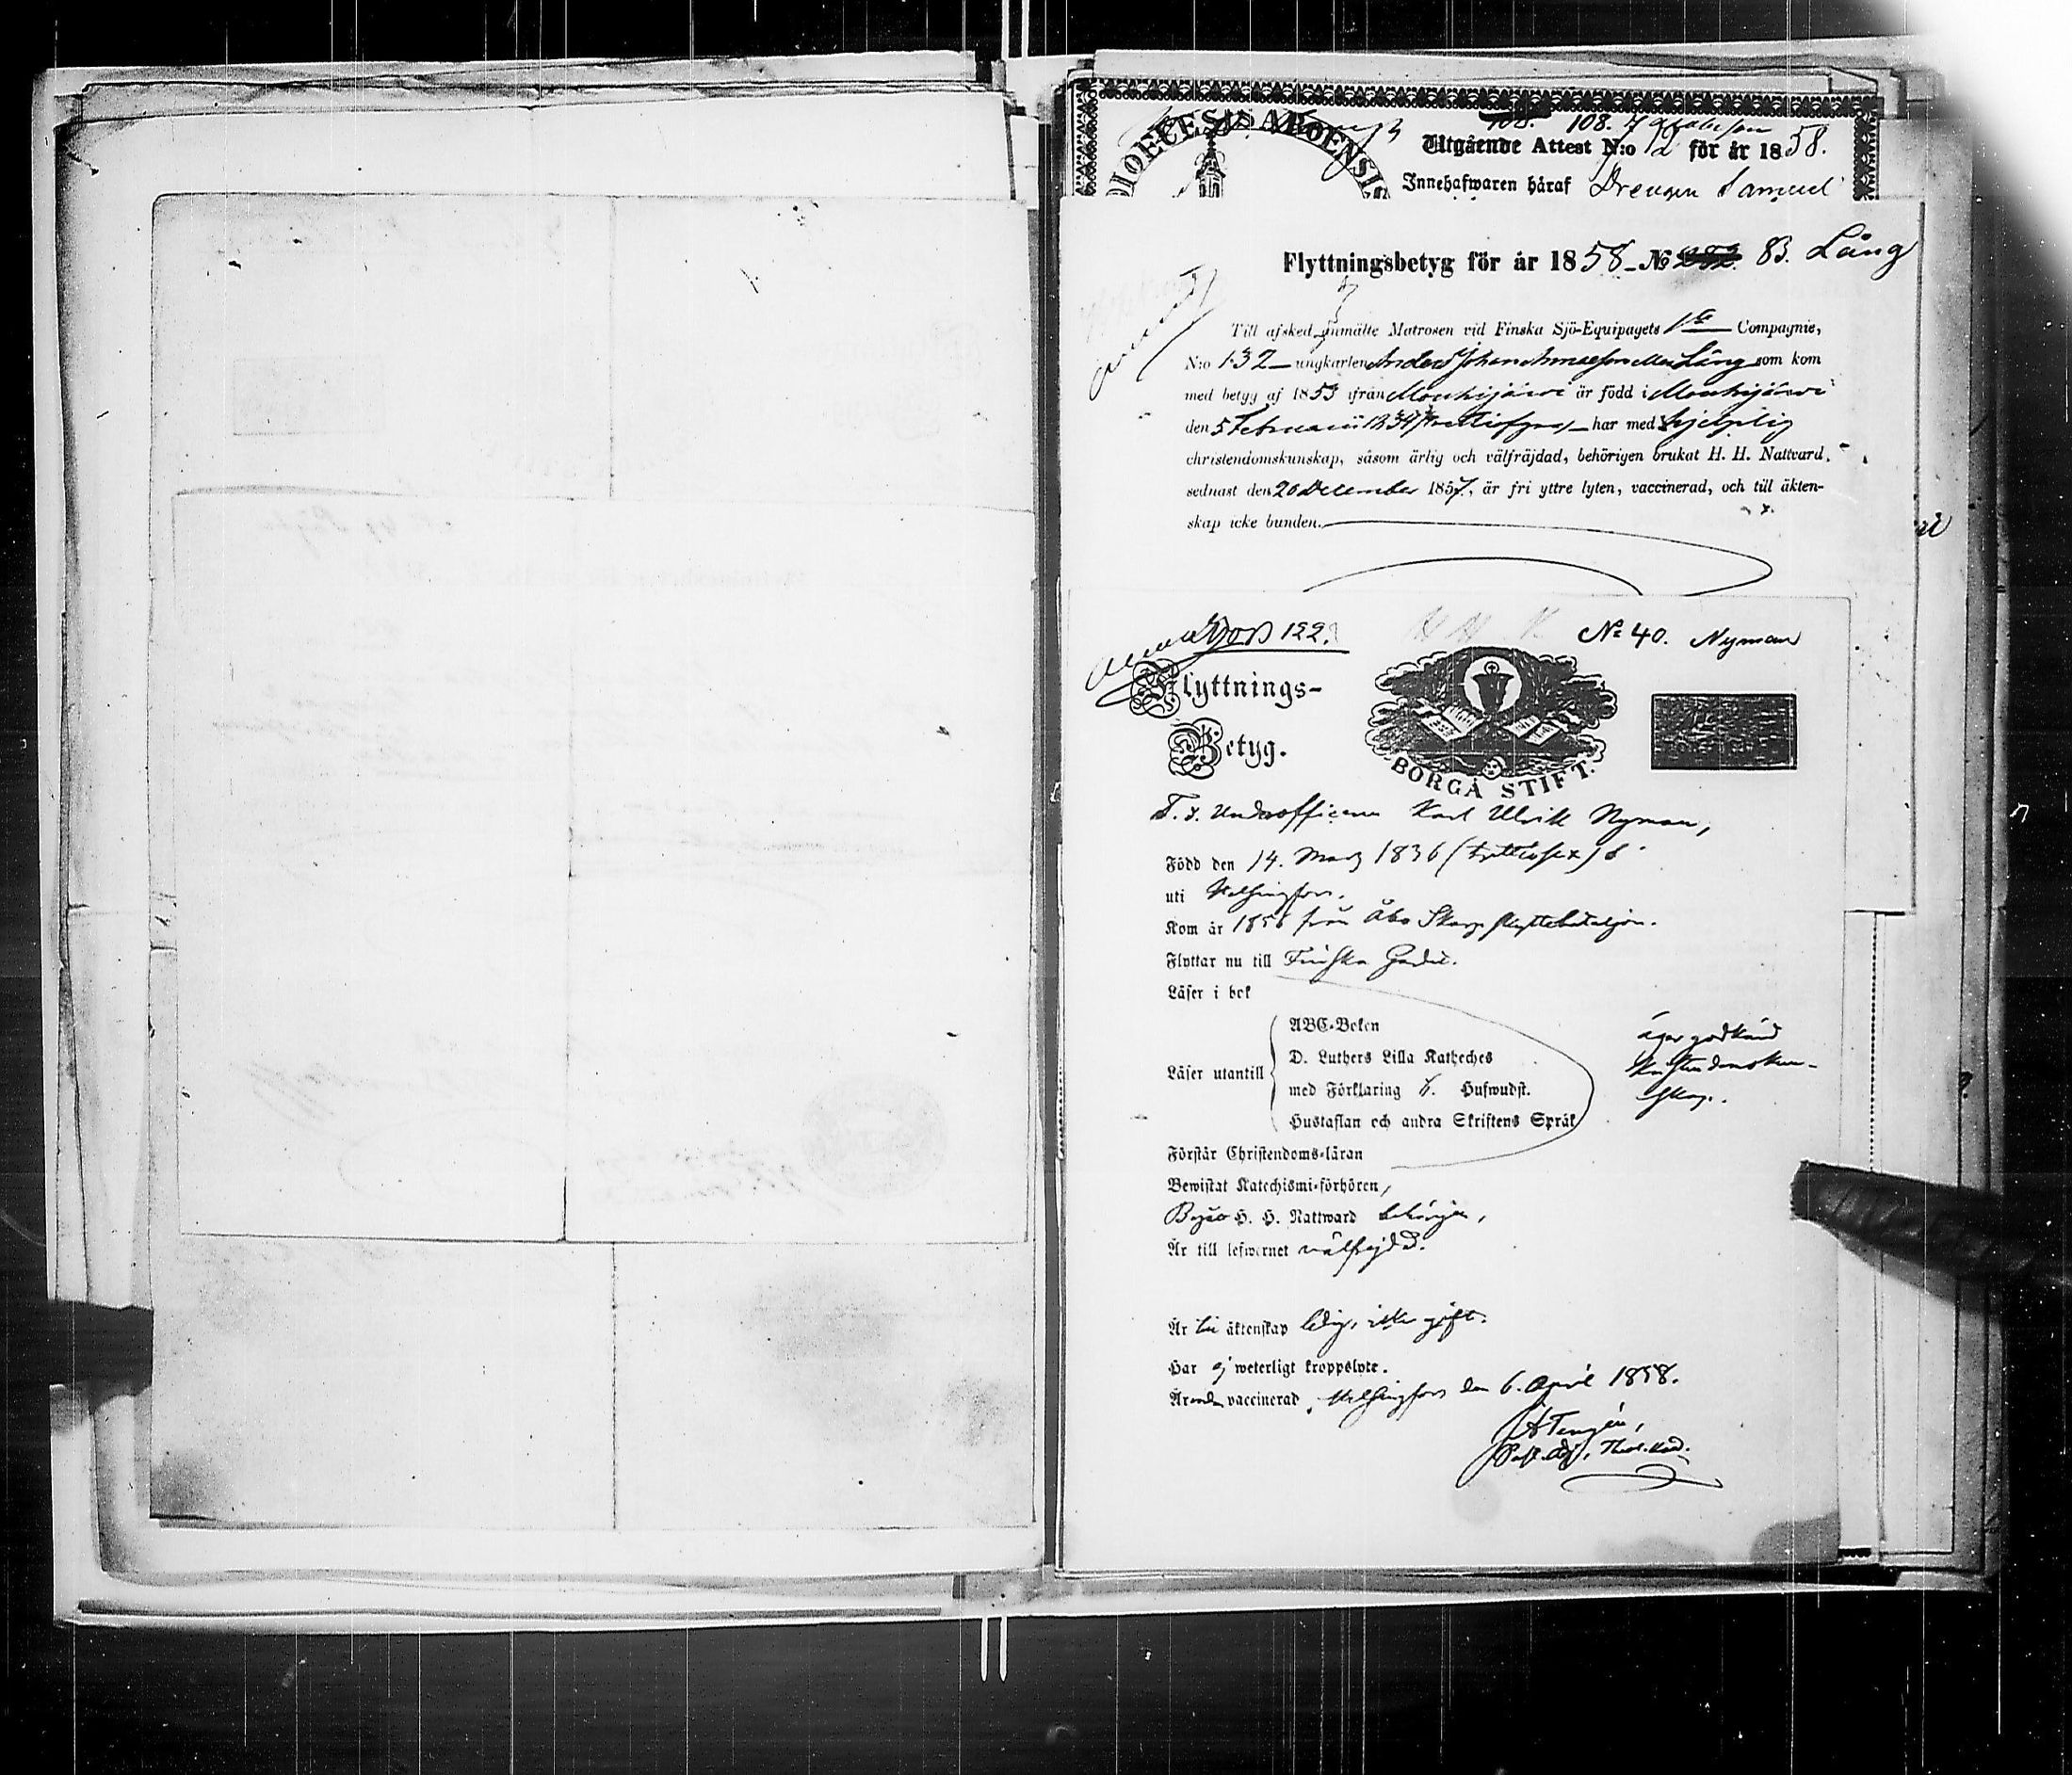 108. 108. Jacobsson
DIOECESIS ABOENSIS
Utgående Attest N:o 12 för år 1858.
Innehafwaren häraf Drengen Samuel
Flyttningsbetyg för år 1858 - № 83. Lång
Till afsked anmälte Matrosen vid Finska Sjö-Equipagets 1sta Compagnie,
N:o 132 ungkarlen Anders Johan Lång som kom
med betyg af 1853 ifrån Mouhijärvi är född i Mouhijärvi
den 5 Februarii 1834 (trettiofyra) har med hjelplig
christendomskunskap, såsom ärlig och välfräjdad, behörigen brukat H. H. Nattvard,
sednast den 26 December 1857, är fri yttre lyten, vaccinerad, och till äkten-
skap icke bunden.
122. № 40. Nyman
Flyttnings-
Betyg.
BORGÅ STIFT.
F. d. Underofficeren Karl Ulrik Nyman,
Född den 14. Mars 1836 (trettiosex)
uti Helsingfors.
Kom år 1856 från Åbo Skarpskyttebataljon.
Flyttar nu till Finska Gardet.
Läser i bok
ABC-Boken
D. Luthers Lilla Katheches
Läser utantill
med Förklaring Hufwudst.
Hustaflan och andra Skriftens Språk
äger godkänd
Kristendomskun-
skap.
Förstår Christendoms-läran
Bewistat Katechismi-förhören,
Begår H. H. Nattward behörigen,
Är till lefwernet välfrejdad.
Är till äktenskap ledig, icke gift.
Har ej weterligt kroppslyte.
Är vaccinerad, Helsingfors den 6. April 1858.
Past. Adj.